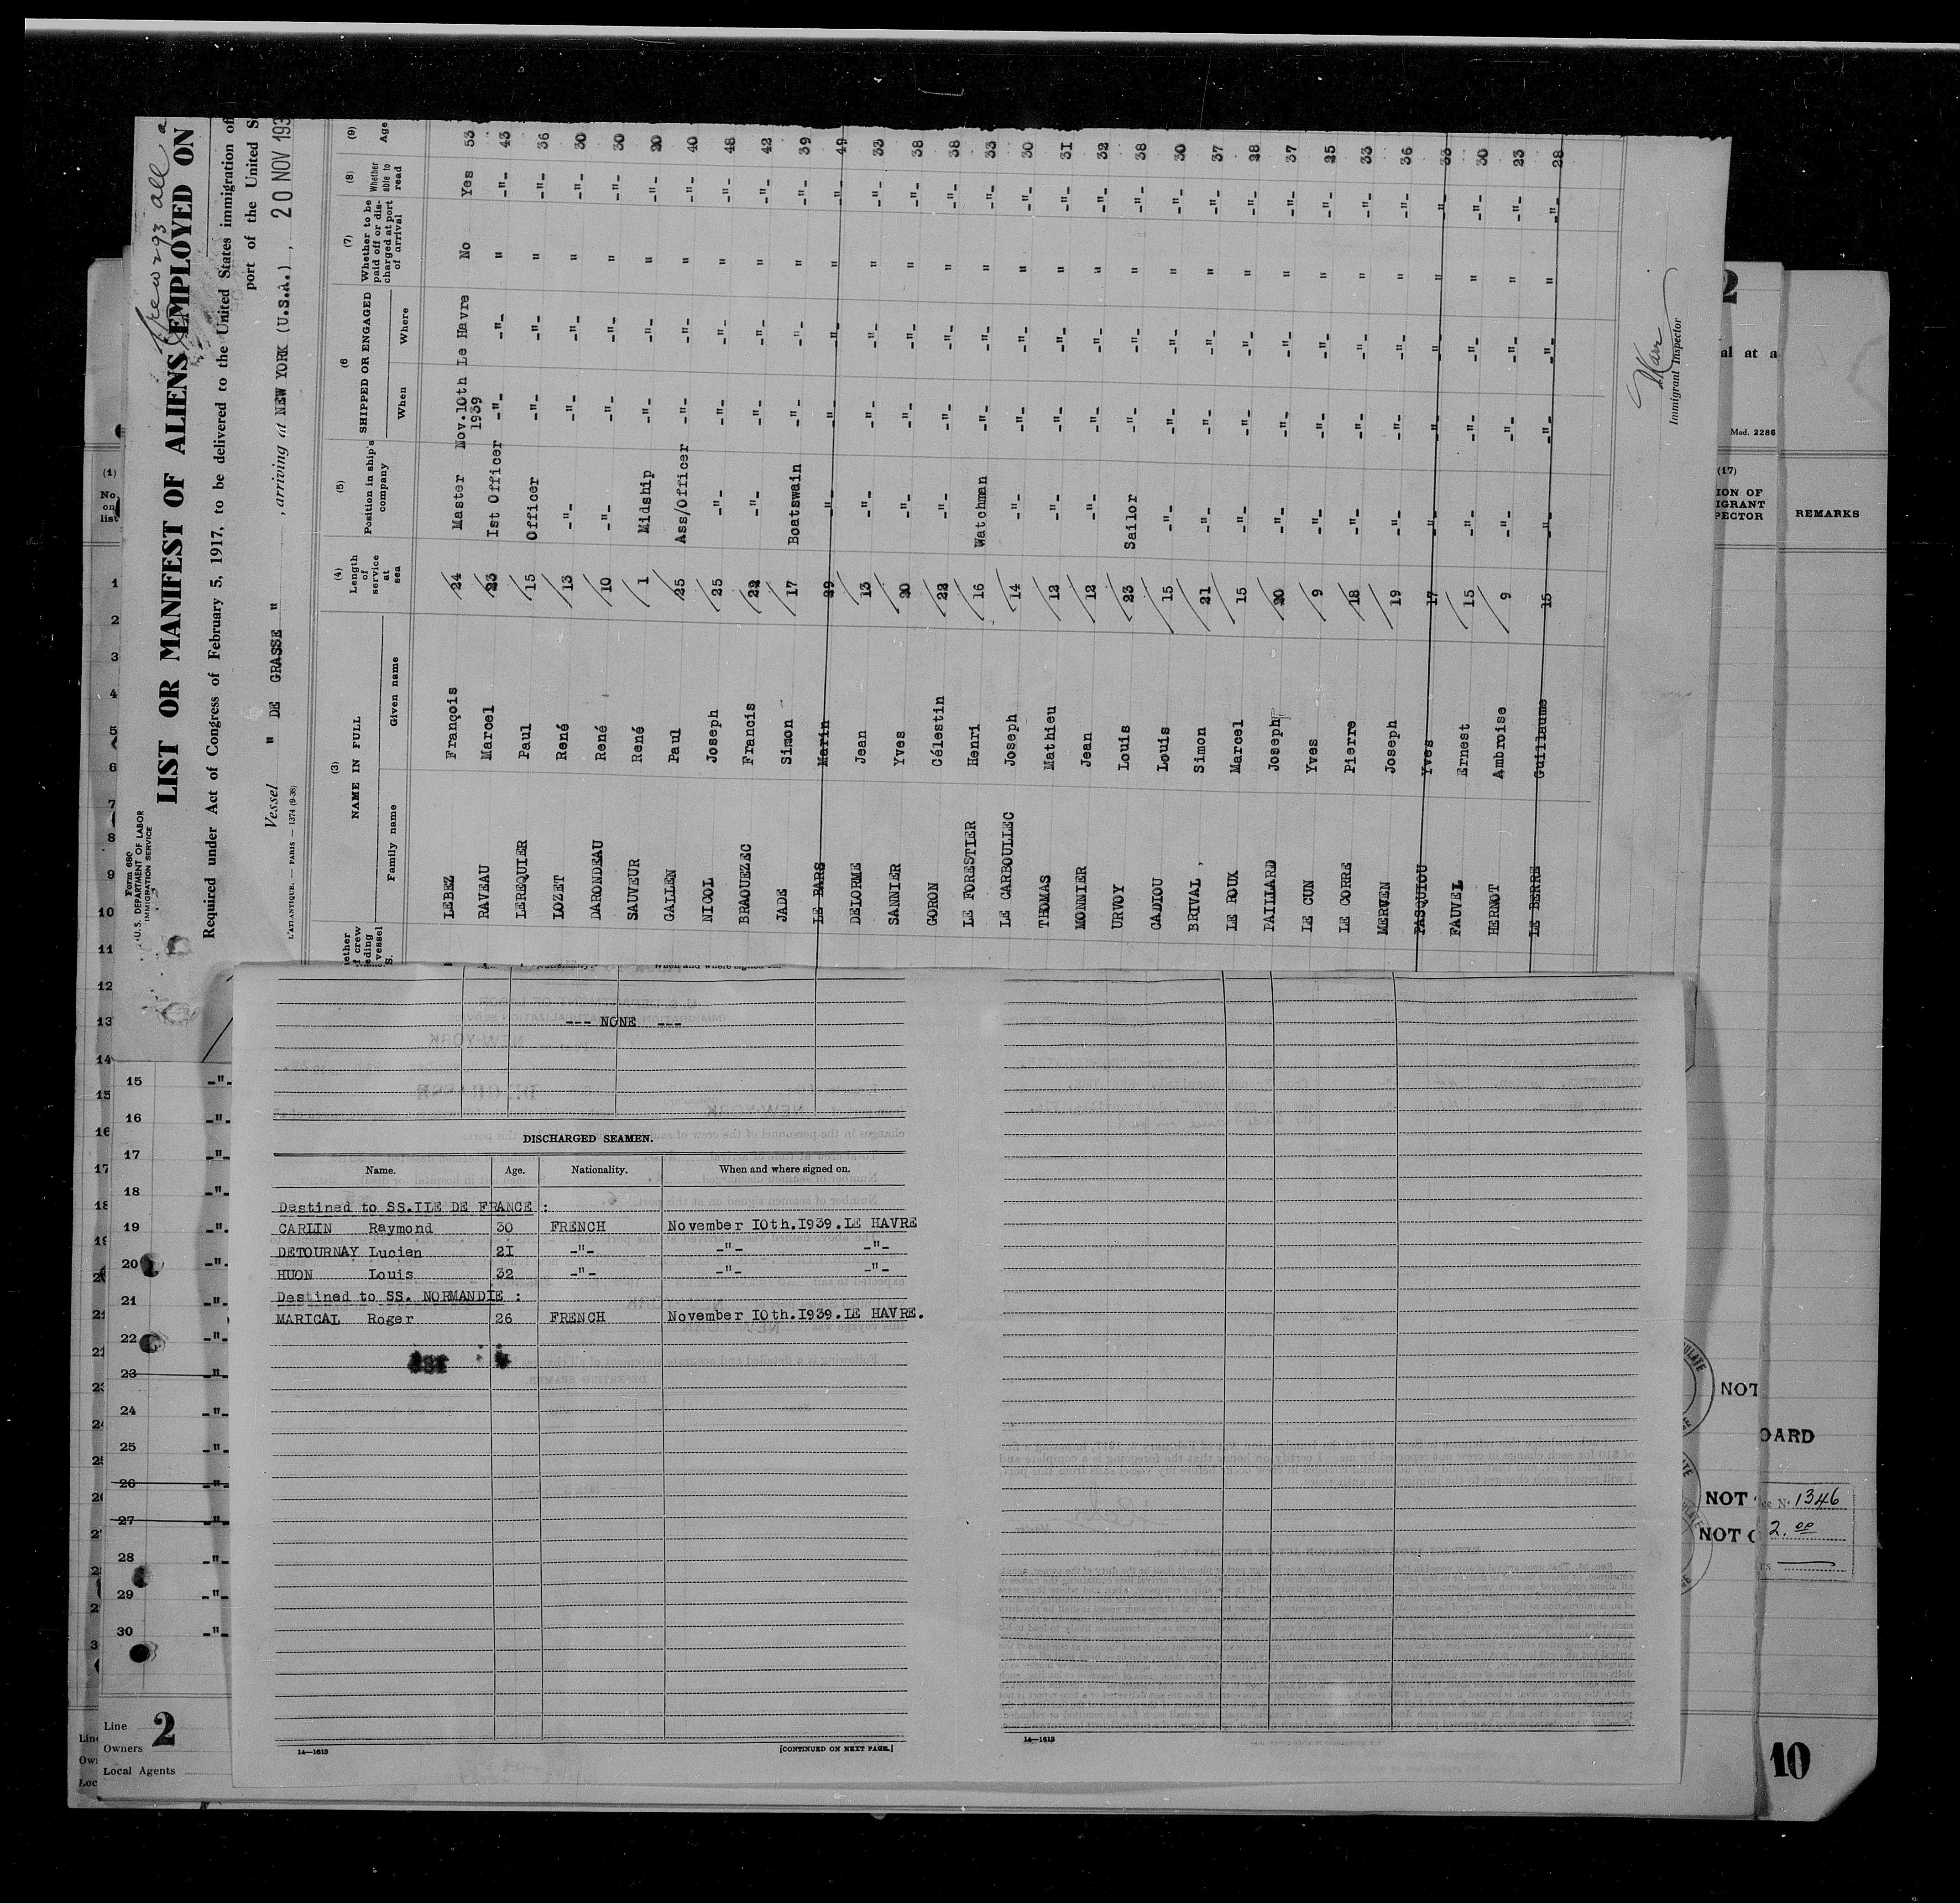 Form 680
U.S. DEPARTMENT OF LABOR
IMMIGRATION SERVICE
LIST OR MANIFEST OF ALIENS EMPLOYED ON
Required under Act of Congress of February 5, 1917, to be delivered to the United States immigration of
port of the United S
Vessel " DE GRASSE " , arriving at NEW YORK (U.S.A.) , 20 NOV 193
L'ATLANTIQUE. — PARIS — 1374 (9-38)
(3) NAME IN FULL (4) Length of service at sea (5) Position in ship's company (6 SHIPPED OR ENGAGED (7) Whether to be paid off or discharged at port of arrival (8) Whether able to read (9) Age
Family name Given name When Where
LEBEZ François 24 Master Nov.10th 1939 Le Havre No Yes 53
RAVEAU Marcel 23 Ist Officer -"- -"- " -"- 43
LEREQUIER Paul 15 Officer -"- -"- " -"- 36
LOZET René 13 -"- -"- -"- " -"- 30
DARONDEAU René 10 -"- -"- -"- " -"- 30
SAUVEUR René 1 Midship -"- -"- " -"- 20
GALLEN Paul 25 Ass/Officer -"- -"- " -"- 40
NICOL Joseph 25 -"- -"- -"- " -"- 48
BRAOUEZEC Francis 22 -"- -"- -"- " -"- 42
JADE Simon 17 Boatswain -"- -"- " -"- 39
LE BARS Marin 29 -"- -"- -"- " -"- 49
DELORME Jean 13 -"- -"- -"- " -"- 33
SANNIER Yves 20 -"- -"- -"- " -"- 38
GORON Célestin 22 -"- -"- -"- " -"- 38
LE FORESTIER Henri 16 Watchman -"- -"- " -"- 33
LE CARBOULLEC Joseph 14 -"- -"- -"- " -"- 30
THOMAS Mathieu 12 -"- -"- -"- " -"- 31
MONNIER Jean 12 -"- -"- -"- " -"- 32
URVOY Louis 23 Sailor -"- -"- " -"- 38
CADIOU Louis 15 -"- -"- -"- " -"- 30
BRIVAL Simon 21 -"- -"- -"- " -"- 37
LE ROUX Marcel 15 -"- -"- -"- " -"- 28
PAILLARD Joseph 20 -"- -"- -"- " -"- 37
LE CUN Yves 9 -"- -"- -"- " -"- 25
LE CORRE Pierre 18 -"- -"- -"- " -"- 33
MERVEN Joseph 19 -"- -"- -"- " -"- 36
PASQUIOU Yves 17 -"- -"- -"- " -"- 33
FAUVEL Ernest 15 -"- -"- -"- " -"- 30
HERNOT Ambroise 9 -"- -"- -"- " -"- 23
LE BERRE Guillaume 15 -"- -"- -"- " -"- 28
Immigrant Inspector
--- NONE ---
DISCHARGED SEAMEN.
Name. Age. Nationality. When and where signed on.
Destined to SS.ILE DE FRANCE :
CARLIN Raymond 30 FRENCH November IOth.I939.LE HAVRE
DETOURNAY Lucien 2I -"- -"- -"-
HUON Louis 32 -"- -"- -"-
Destined to SS. NORMANDIE :
MARICAL Roger 26 FRENCH November IOth.I939.LE HAVRE.
14—1613 [CONTINUED ON NEXT PAGE.]
14—1613
(1)
No on list
1
2
3
4
5
6
7
8
9
10
11
12
13
14
15 -"-
16 -"-
17 -"-
18 -"-
19 -"-
20 -"-
21 -"-
22 -"-
23 -"-
24 -"-
25 -"-
26 -"-
27 -"-
28 -"-
29 -"-
30 -"-
Line
Owners
Local Agents
2
2
al at a
Mod. 2286
(17)
ION OF
IGRANT
PECTOR
REMARKS
NOT
OARD
NOT
NOT
No 1346
2.00
10